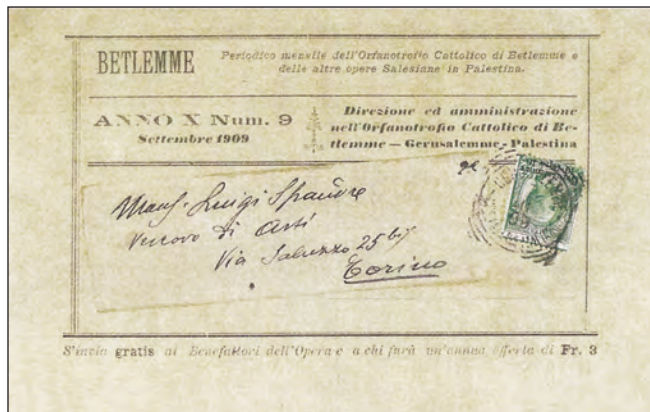 BETLEMME
Periodico mensile dell'Orfanotrofio Cattolico di Betlemme e
delle altre opere Salesiane in Palestina.
ANNO X Num. 9
Settembre 1909
Direzione ed amministrazione
nell'Orfanotrofio Cattolico di Be-
tlemme — Gerusalemme - Palestina
Luigi Spandre
Vescovo di Asti
Via Saluzzo 25 bis
Torino
S'invia gratis ai Benefattori dell'Opera e a chi farà un'annua offerta di Fr. 3